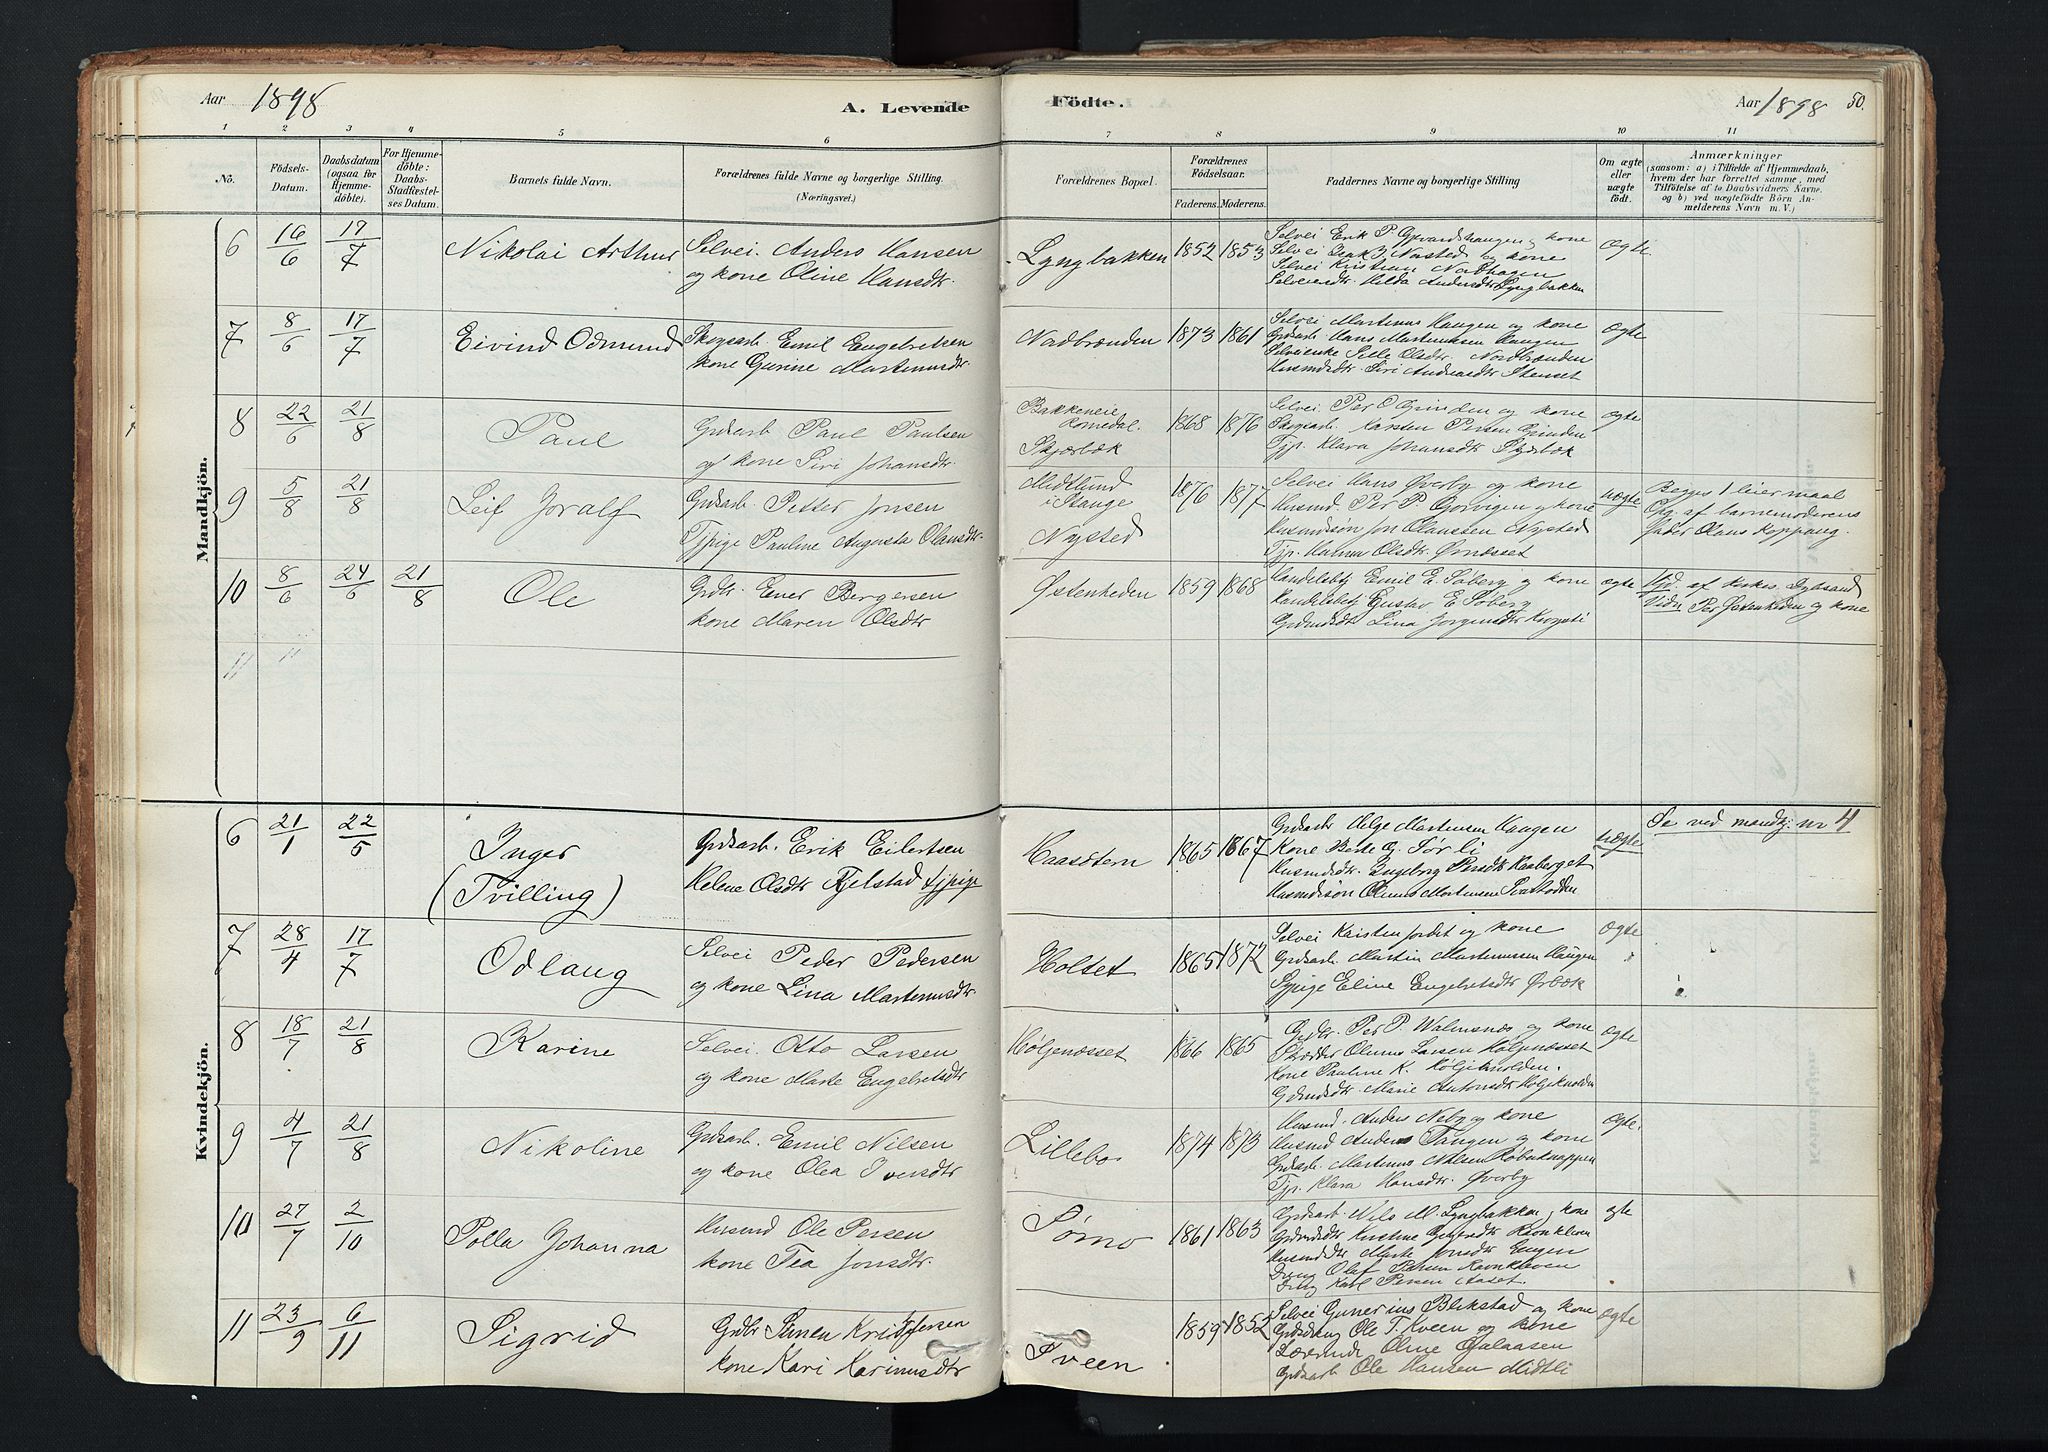 Aar 1898
A. Levende
Födte.
Aar 1898
50.
1 2 3 4 5 6 7 8 9 10 11
No.
Födsels-Datum.
Daabsdatum (ogsaa for Hjemme-döbte).
For Hjemme-döbte: Daabs-Stadfæstel-ses Datum.
Barnets fulde Navn.
Forældrenes fulde Navne og borgerlige Stilling.
(Næringsvei.)
Forældrenes Bopæl.
Forældrenes Födselsaar.
Faderens. Moderens.
Faddernes Navne og borgerlige Stilling
Om ægte eller uægte født.
Anmærkninger
(saasom: a) i Tilfælde af Hjemmedaab,
hvem der har forrettet samme, med
Tilföielse af to Daabsvidners Navne,
og b) ved uægtefödte Börn An-
melderens Navn m. V.)
Mandkjön.
6 16/6 17/7 Nikolai Arthur
Selvei. Anders Hansen
og kone Oline Hansdtr.
Lyngbakken 1852 1853
Selvei Erik P. kone
Selvei Isak Nysted og kone
Selvei Kristian
Selveierdtr. Hilda Andersdtr Lyngbakken
Ægte
7 8/6 17/7 Eivind Odmund
Skogsarb. Emil Engebretsen
kone Gunine Martinusdtr.
Nadbrænden 1873 1861
Selvei Martinus Haugen og kone
Grdsarb. Hans Martinussen Haugen
Selveierske Sille Olsdtr. Nordbrænden
Husmdsdtr. Siri Andreasdtr Stenset
Ægte
8 22/6 21/8 Paul
Grdsarb Paul Paulsen
og kone Siri Johansdtr.
Bakkeneie
Romedal.
Skjærbæk
1868 1876
Selvei. Per O Grinden og kone
Skogsarb. Karsten Persen Grinden
Tjp. Klara Johansdtr
ægte
9 5/8 21/8 Leif Joralf
Grdsarb Petter Jonsen
Tjpige Pauline Augusta Olansdtr.
Midtlund
i Stange
Nysted
1876 1877
Selvei Hans Øverby og kone
Husmd. Per P. Gorvigen og kone
Husmdsøn Jon Olaussen Nysted
Tjp. Halma Olsdtr. Ørnæsset
uægte
Begges 1 leiermaal
Opg. af barnemoderens
fader Olaus Koppang.
10 8/6 24/6 21/8 Ole
Grdbr. Ener Bergersen
kone Maren Olsdtr
Østenheden 1859 1868
Handelsbtj Emil E. Søberg og kone
Handelsbtj Gustav E Søberg
Grdmdsdt Lina Jørgensdtr
ægte
Hjd. af Kirkes.
Vidn Per Østenheden og kone
11 "
Kvindekjön.
6 21/1 22/5 Inger
(Tvilling)
Grdsarb. Erik Eilertsen
Helene Olsdtr Fjelstad tjpige
Haasdtern 1865 1867
Grdsarb Helge Martinsen Haugen
Kone Berte G. Sørli
Husmdsdtr. Ingeborg Persdtr Kaaberget
Husmdsøn Olnus Martinsen Svartodden
uægte
Se ved mandkj. nr 4
7 28/4 17/7 Odlaug
Selvei Peder Pedersen
og kone Lina Martinusdtr.
Holtet 1865 1872
Selvei Karsten og kone
Grdsarb. Martin Martinussen Haugen
Tjpige Eline Engebretsdtr Ørbæk
Ægte
"
8 18/7 21/8 Karine
Selvei. Otto Larsen
og kone Marte Engebretsdtr
Høljenæsset 1866 1865
Grdbr. Per P. Walmsnæs og kone
Skrædder Olnus Larsen Høljenæsset
Kone Pauline K. Høljeknolden.
Grdmdsdtr. Marie Antonsdtr Høljeknolden
Ægte
9 4/7 21/8 Nikoline
Grdsarb. Emil Nilsen
og kone Olea Iversdtr
Lillebo 1874 1873
Husmd. Anders Neby og kone
Husmd Anders Tangen og kone
Grdsarb. Martinus Nilsen
Tjp. Klara Hansdtr. Øverby
Ægte.
10 27/7 2/10 Polla Johanna
Husmd Ole Persen
kone Tea Jonsdtr.
Sørmo 1861 1863
Grdsarb. Nils M. Lyngbakken kone
Grdmdsdtr Kristine Ravnkleven
Husmdsdtr Marte Jonsdtr Engen
Ung Olaf Ravnkleven
Ung Karl Persen Aaset.
ægte
11 23/9 6/11 Sigrid
Grdbr Simen Kristoffersen
kone Kari Karinusdtr
Sveen 1859 1852
Selvei Gunerius Blikstad og kone
Ole T. Kveen og kone
Lærerinde Oline Galaasen
Grdsarb Ole Hansen Midtli
Ægte